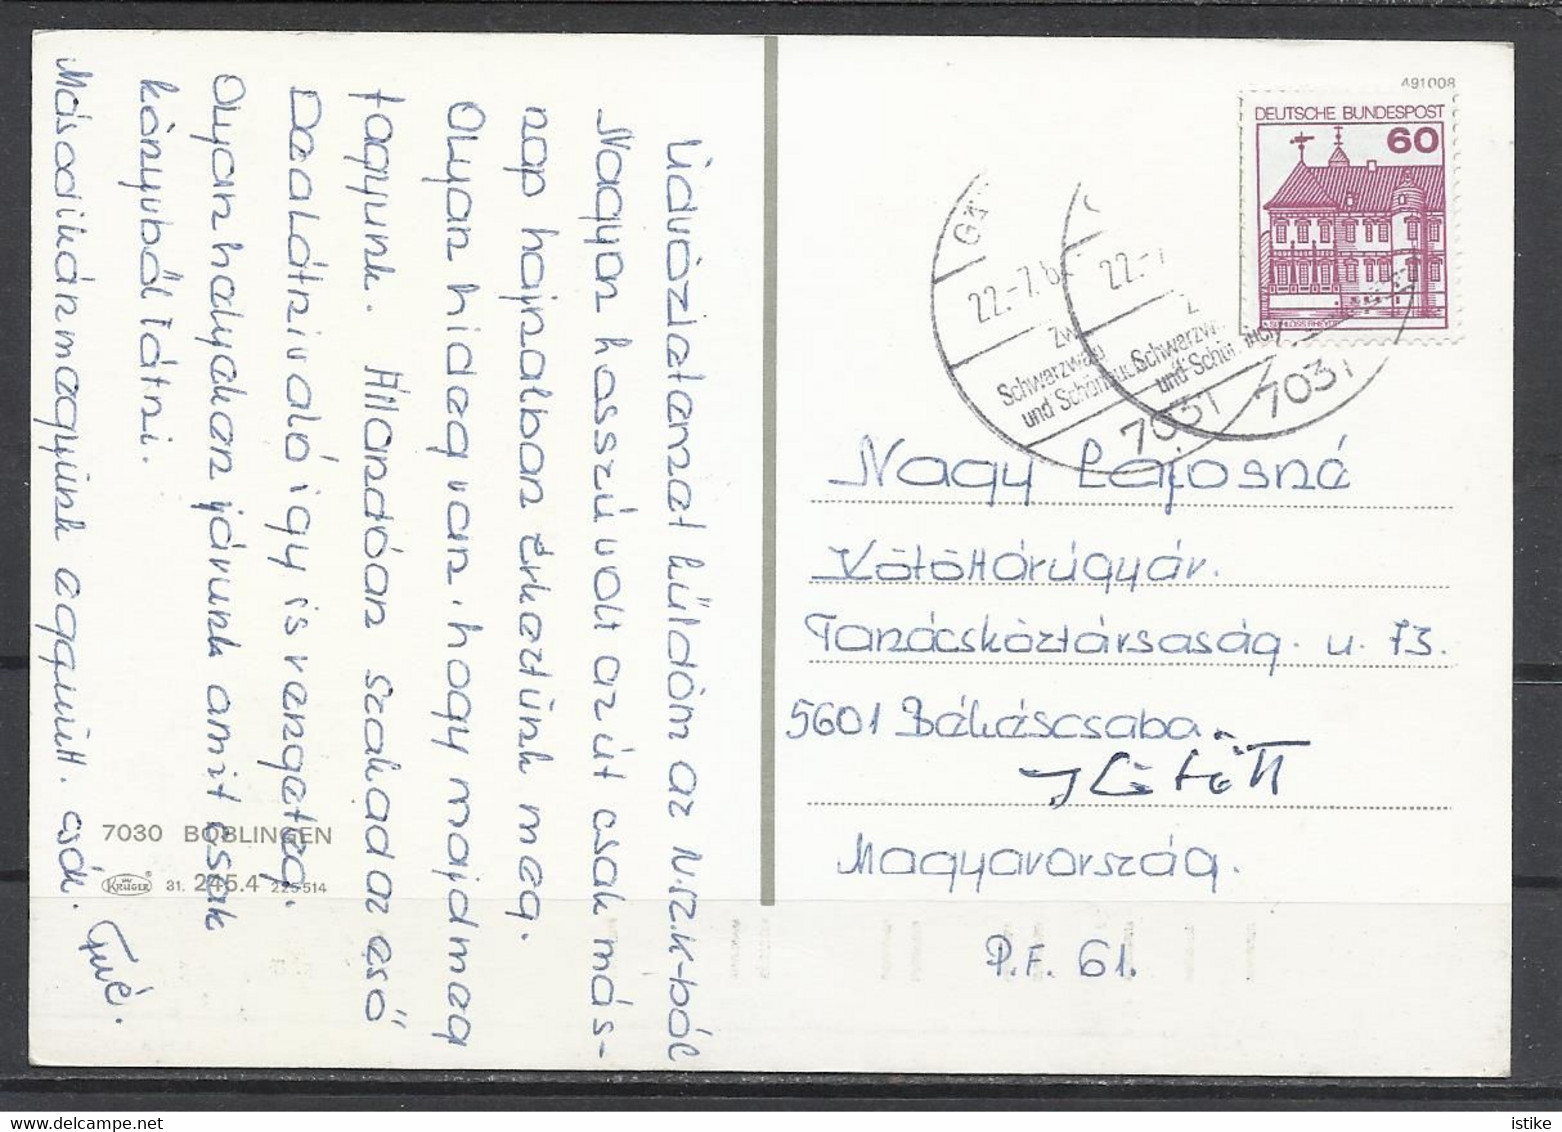 Üdvözletemet küldöm az N.SZ.K-ból
Nagyon hosszú volt az út csak más-
nap hajnalban érkeztünk meg.
Olyan hideg van, hogy majdmeg
fagyunk. Állandóan szakad az eső
De a látnivaló így is rengeteg.
Olyan helyeken járunk amit csak
könyvből látni.
Másodikán megyünk együtt. csók.
7030 BÖBLINGEN
KRÜGER 31. 245.4 225 514
491008
DEUTSCHE BUNDESPOST
60
SCHLOSS RHEYDT
22.-7.8
22.-7
Schwarzwald
und Schönbuch
Schwarzw
und Schön
7031
7031
Nagy Lajosné
Kötöttárúgyár.
Tanácsköztársaság. u. 73.
5601 Békéscsaba.
Magyarország.
P.F. 61.
istike
delcampe.net